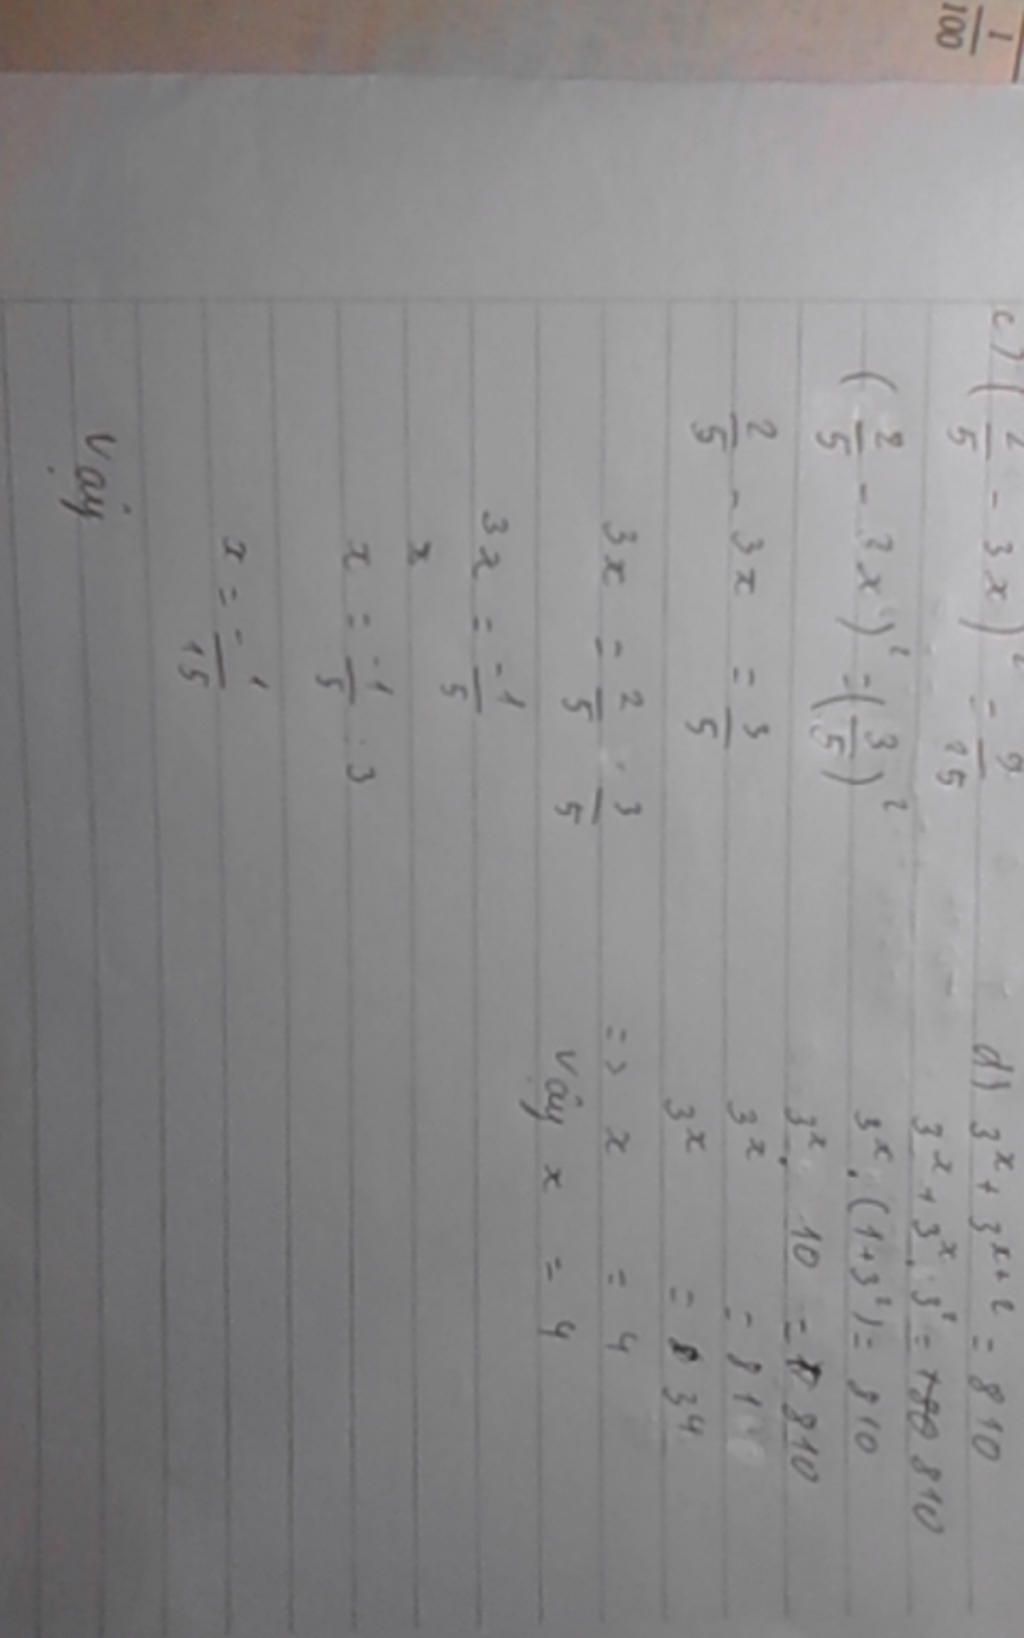 1/100
c) (2/5 - 3x)² = 9/25
(2/5 - 3x)² = (3/5)²
2/5 - 3x = 3/5
3x = 2/5 - 3/5
3x = -1/5
x
x = -1/5 : 3
x = -1/15
Vậy
d) 3ˣ + 3ˣ⁺² = 810
3ˣ + 3ˣ . 3² = 810
3ˣ . (1+3²) = 810
3ˣ . 10 = 810
3ˣ = 81
3ˣ = 3⁴
=> x = 4
Vậy x = 4